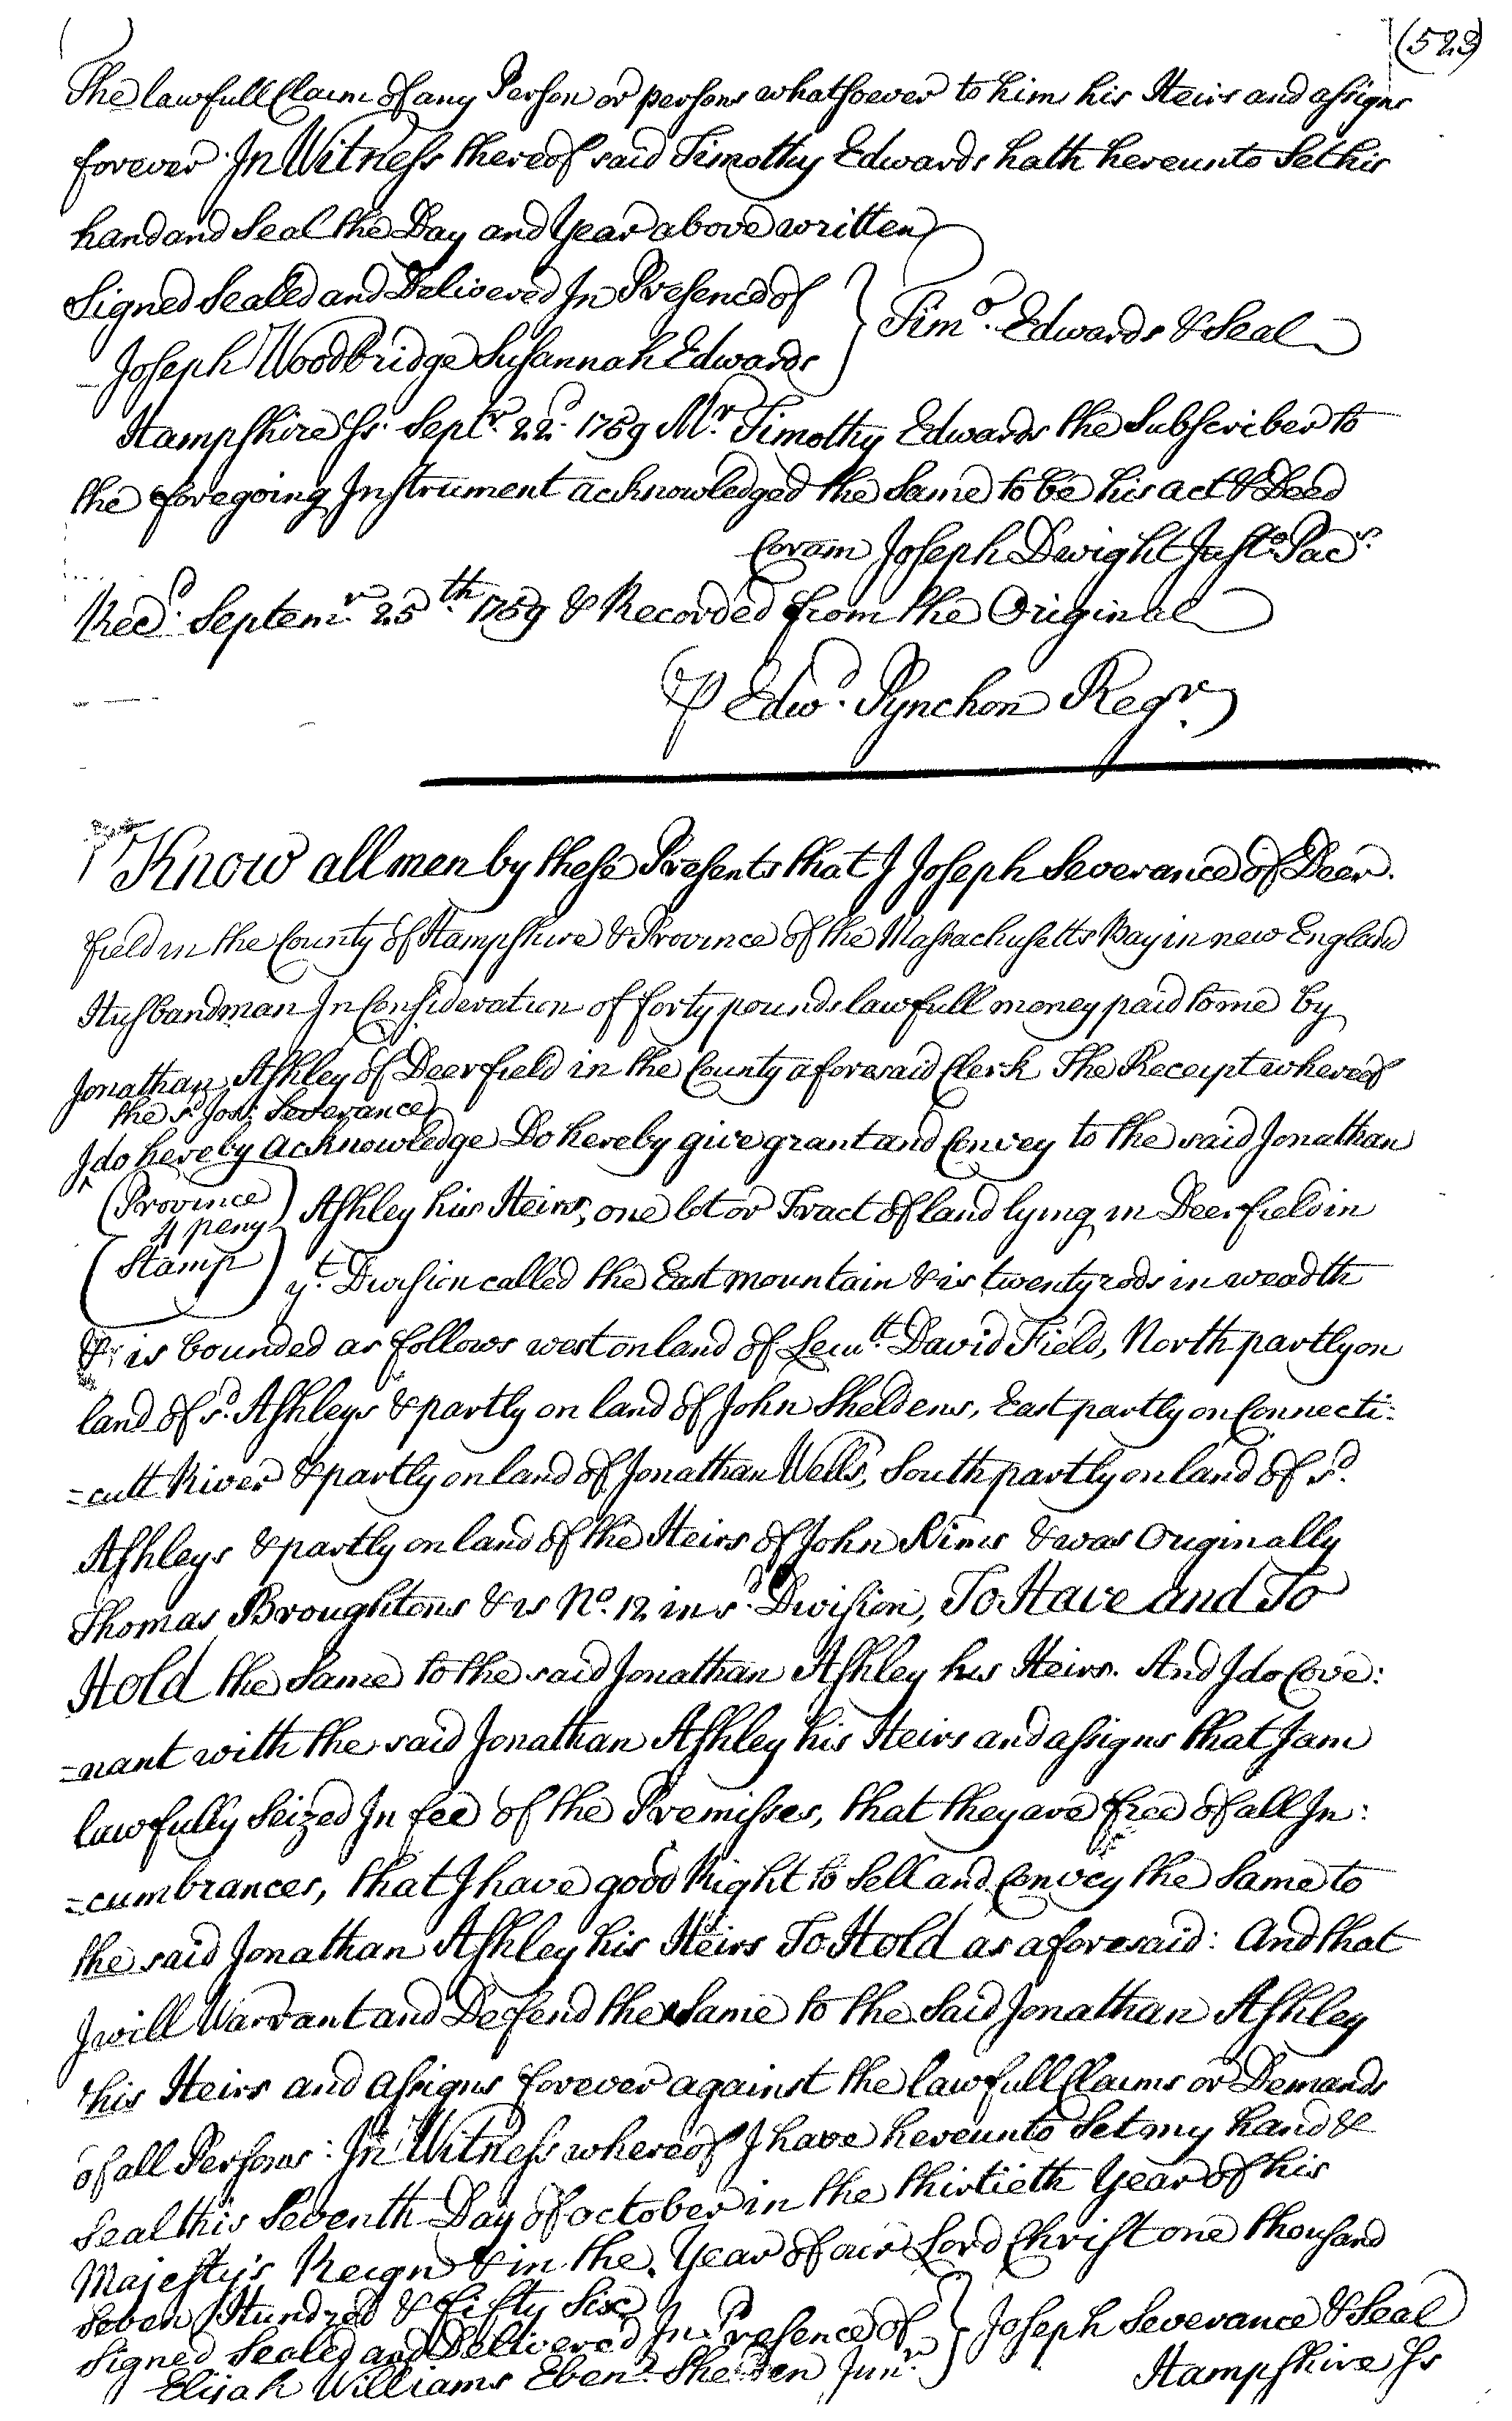 (523)
The lawfull Claim of any Person or persons whatsoever to him his Heirs and assigns
forever. In Witness thereof said Timothy Edwards hath hereunto Set his
hand and Seal the Day and Year above written
Signed Sealed and Delivered In Presence of } Timo. Edwards & Seal
Joseph Woodbridge Susannah Edwards
Hampshire Ss. Septr. 22d. 1759 Mr. Timothy Edwards the Subscriber to
the foregoing Instrument acknowledged the Same to be his act & Deed
Coram Joseph Dwight Justo. Pacs.
Recd. Septemr. 25th. 1759 & Recorded from the Original
P Edwd. Pynchon Regr.
Know all men by these Presents that I Joseph Severance of Deer-
field in the County of Hampshire & Province of the Massachusetts Bay in new England
Husbandman In Consideration of forty pounds lawfull money paid to me by
Jonathan Ashley of Deerfield in the County aforesaid Clerk The Receipt whereof
the sd. Jos: Severance
I do hereby acknowledge Do hereby give grant and Convey to the said Jonathan
(Province 4 peny Stamp) Ashley his Heirs, one lot or Tract of land lying in Deerfield in
yt. Division called the East mountain & is twenty rods in weadth
& is bounded as follows west on land of Leiut. David Field, North partly on
land of sd. Ashleys & partly on land of John Sheldens, East partly on Connecti:
=cutt River & partly on land of Jonathan Wells, South partly on land of sd.
Ashleys & partly on land of the Heirs of John Nims & was Originally
Thomas Broughtons & is No. 12 in sd. Division, To Have and To
Hold the Same to the said Jonathan Ashley his Heirs. And I do Cove:
=nant with the said Jonathan Ashley his Heirs and assigns that I am
lawfully Seized In fee of the Premisses, that they are free of all In:
=cumbrances, that I have good Right to Sell and Convey the Same to
the said Jonathan Ashley his Heirs To Hold as aforesaid: And that
I will Warrant and Defend the Same to the Said Jonathan Ashley
his Heirs and assigns forever against the lawfull Claims or Demands
of all Persons: In Witness whereof I have hereunto Set my hand &
Seal this Seventh Day of October in the thirtieth Year of his
Majesty's Reign & in the Year of our Lord Christ one thousand
Seven Hundred & Fifty Six
Signed Sealed and Delivered In Presence of } Joseph Severance & Seal
Elijah Williams Ebenr. Shelden Junr. Hampshire Ss